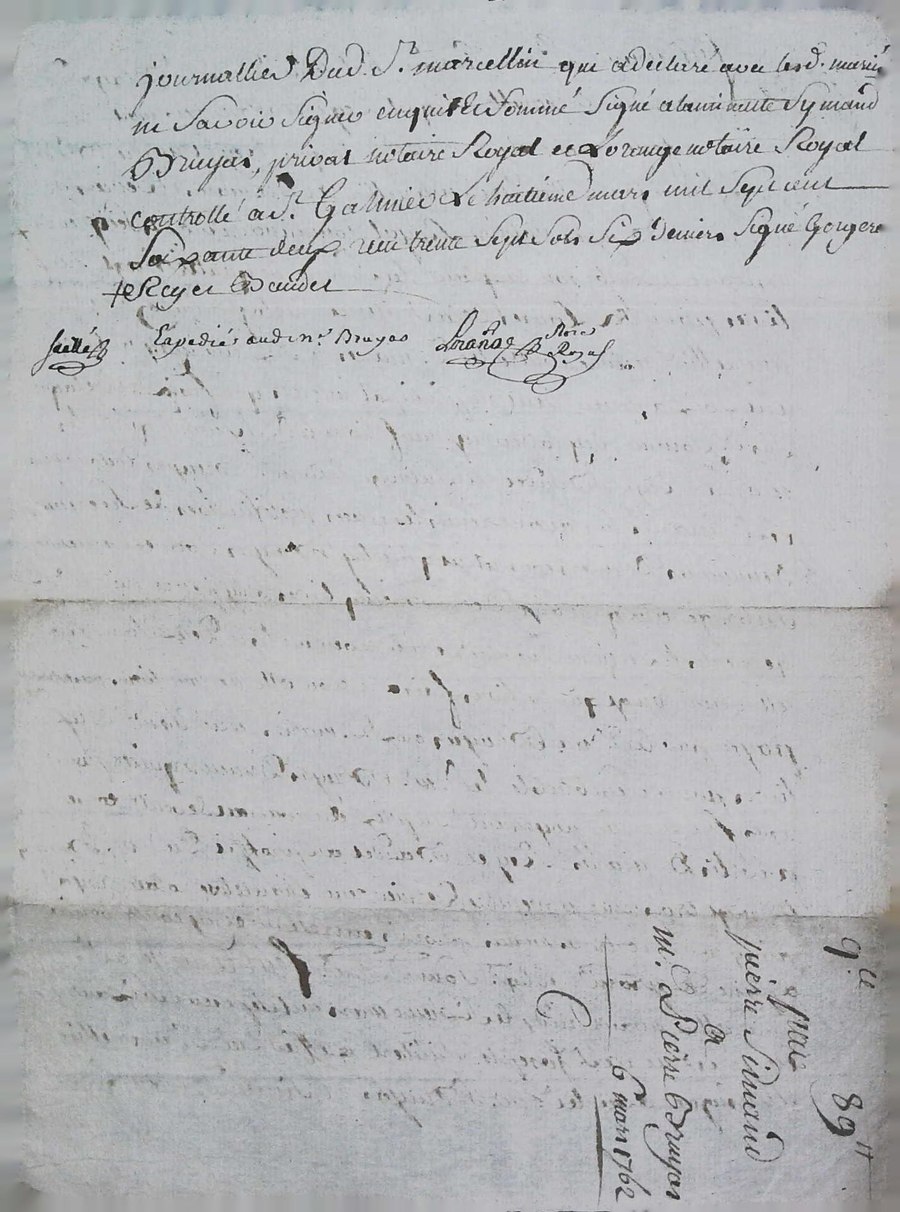 journallier Dud. St. marcellin qui a declaré avec led. marié
ni Savoir Signer enquis Et Sommé Signé alaminute Symand
Bruyas, privat notaire Royal et Lorange notaire Royal
controllé a St. Galmier Le huitieme mars mil Sept cent
Soixante deux reçu trente Sept Sols Six Deniers Signé
Royer Baudet
Scellé Expedié aud. mr. Bruyas Lorange Nore Royal
9.ce 89tt
pour
pierre Simand
a
m.e Pierre Bruyas
6 mars 1762